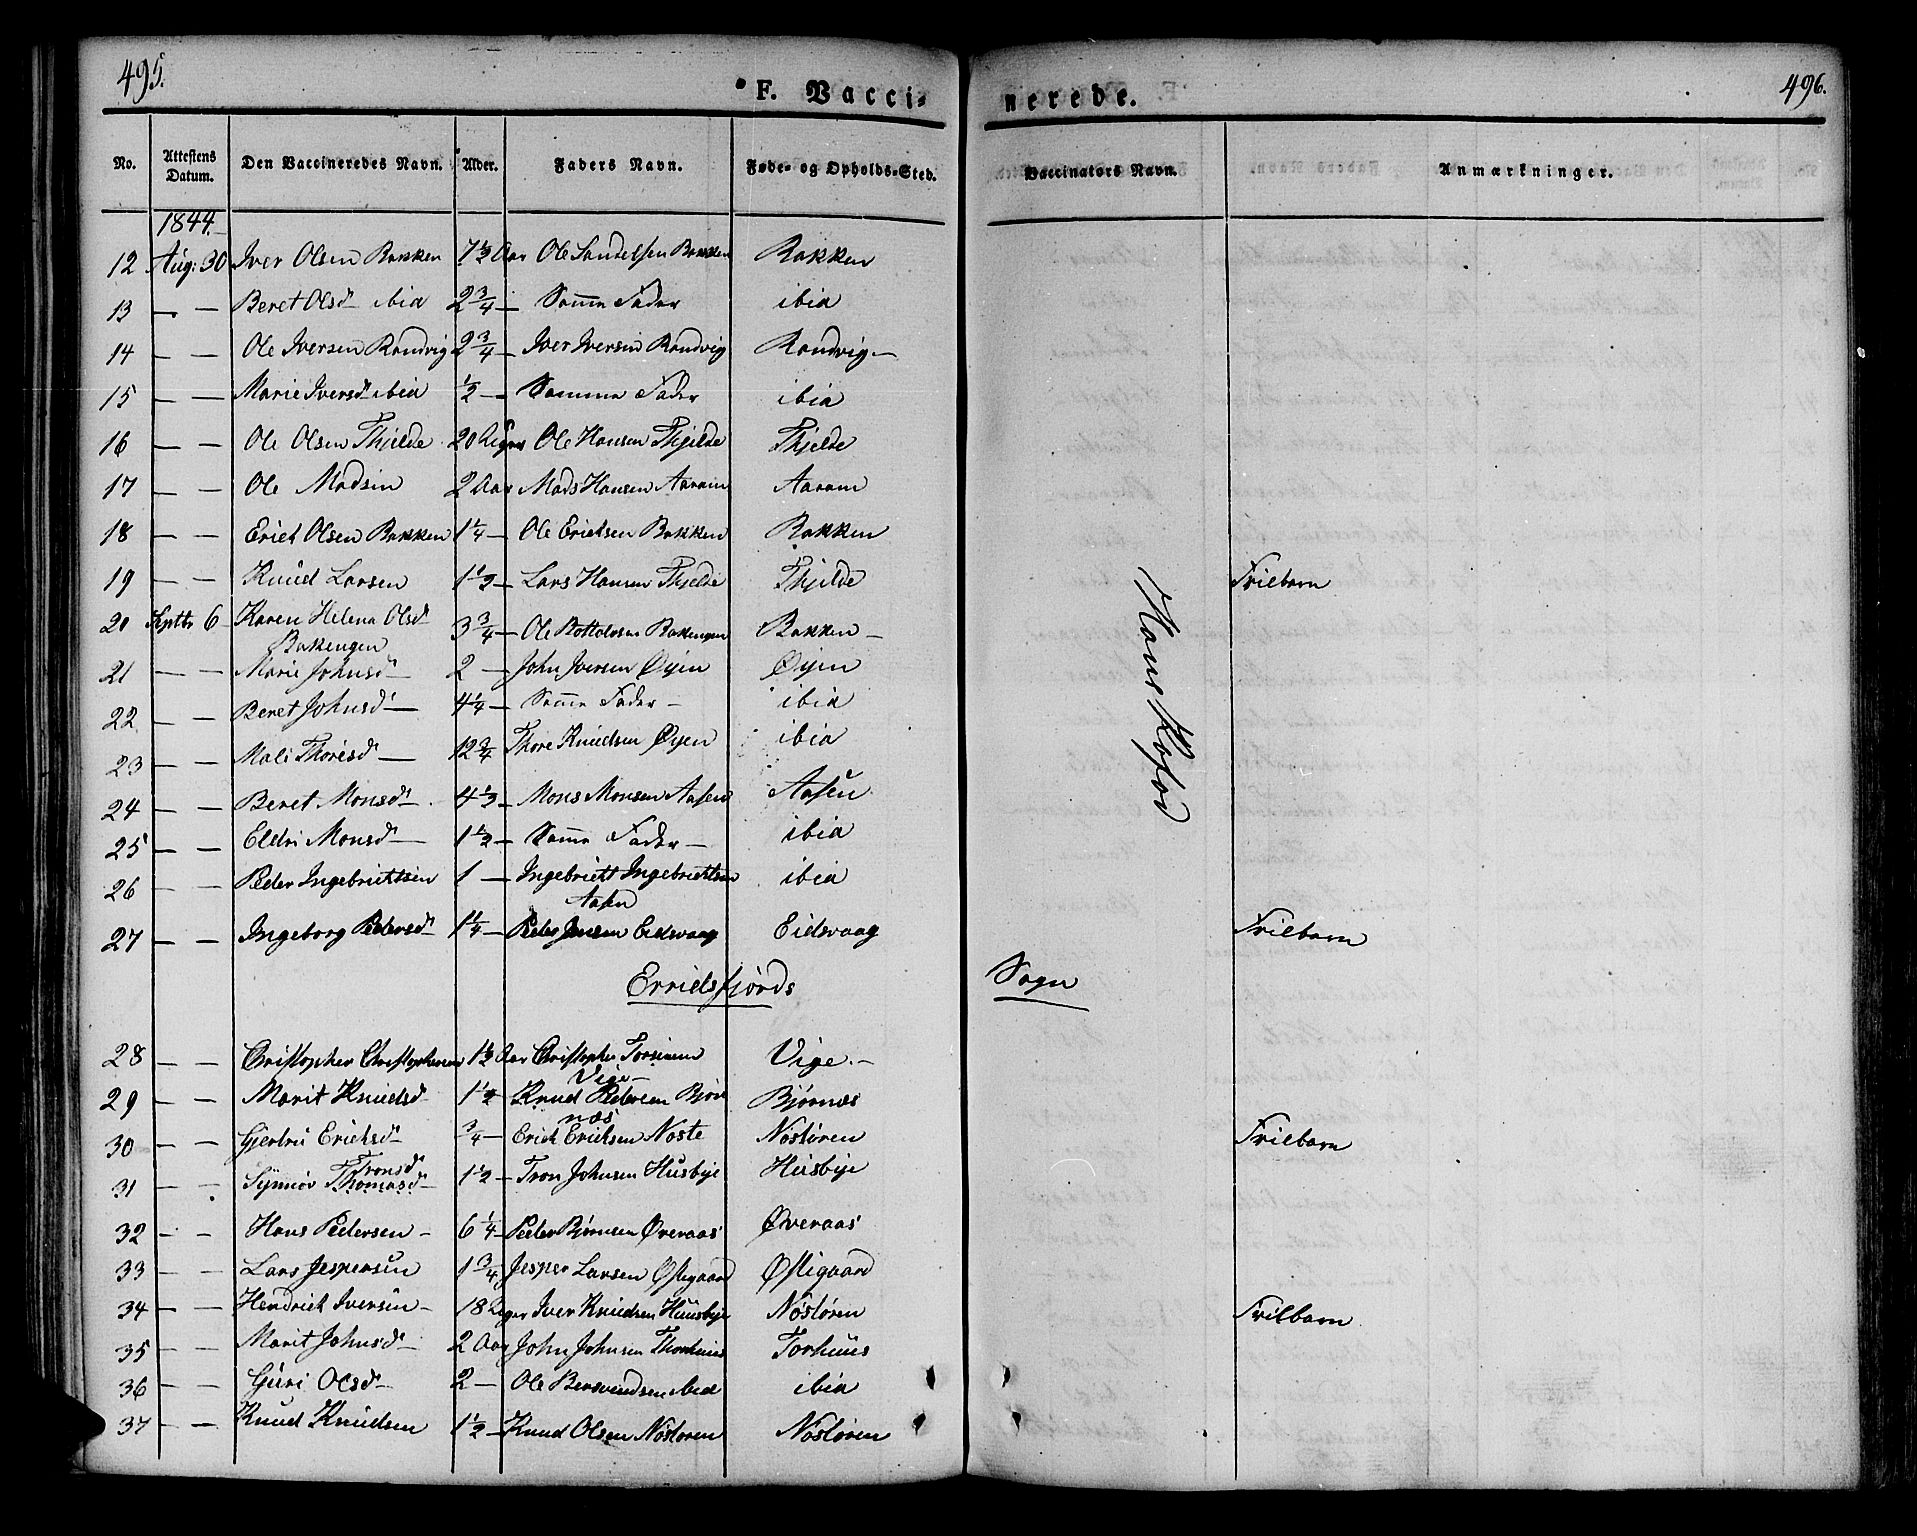 495.
F. Vacci-
nerede.
496.
No. Attestens Datum. Den Vaccineredes Navn. Alder. Faders Navn. Føde- og Opholds-Sted. Vaccinators Navn. Anmærkninger.
1844.
12 Aug: 30 Iver Olsen Bakken 7 1/2 Aar Ole Bakken Bakken
13 — — Beret Olsd ibid 2 3/4 — Samme Fader ibid
14 — — Ole Iversen Randvig 2 3/4 — Iver Iversen Randvig Randvig —
15 — — Marie Iversd ibid 1/2 — Samme Fader ibid
16 — — Ole Olsen Thjelde 20 Uger Ole Hansen Thjelde Thjelde
17 — — Ole Madsen 2 Aar Mads Hansen Aaram Aaram
18 — — Erich Olsen Bakken 1 1/4 — Ole Erichsen Bakken Bakken
19 — — Knud Larsen 1 1/2 — Lars Hansen Thjelde Thjelde Frilbarn
20 Septbr 6 Karen Helena Olsd 3 3/4 — Ole Bakengen Bakken —
Bakengen
21 — — Marie Johnsd 2 — John Iversen Øyen Øyen
22 — — Beret Johnsd — 4 1/4 — Samme Fader — ibid
23 — — Mali Thoresd — 12 3/4 Thore Knudsen Øyen ibid
24 — — Beret Monsd — 4 1/3 — Mons Monsen Aasen Aasen
25 — — Eldri Monsd — 1 1/2 — Samme Fader — ibid
26 — — Peder Ingebrichtsen 1 — Ingebricht Ingebrichtsen ibid
Aasen
27 — — Ingeborg Pedersd 1 1/4 — Peder Jensen Eidsvaag Eidsvaag Frilbarn
Hans Kofod
Erridsfjords Sogn
28 — — Christopher Christophersen 1 1/2 Aar Christopher Vige. —
Vige —
29 — — Marit Knudsd 1 1/2 Knud Pedersen Bjør Bjørnæs
næs
30 — — Gjertru Erichsd 3/4 — Erich Erichsen Noste Nostøren Frilbarn
Tronsd
31 — — Synnøv Thomasd — 1 1/2 — Tron Johnsen Husbye Husbye
32 — — Hans Pedersen — 6 1/4 — Peder Bjørnsen Øveraas Øveraas
33 — — Lars Jespersen 1 3/4 Jesper Larsen Østigaard Østigaard
34 — — Hendrich Iversen — 18 Uger Iver Knudsen Huusbye Nostøren Frilbarn
35 — — Marit Johnsd — 2 Aar John Johnsen Thorhuus Torhuus
36 — — Guri Olsd — 2 — Ole Bersvendsen ibid ibid
37 — — Knud Knudsen 1 1/2 — Knud Olsen Nostøren Nostøren